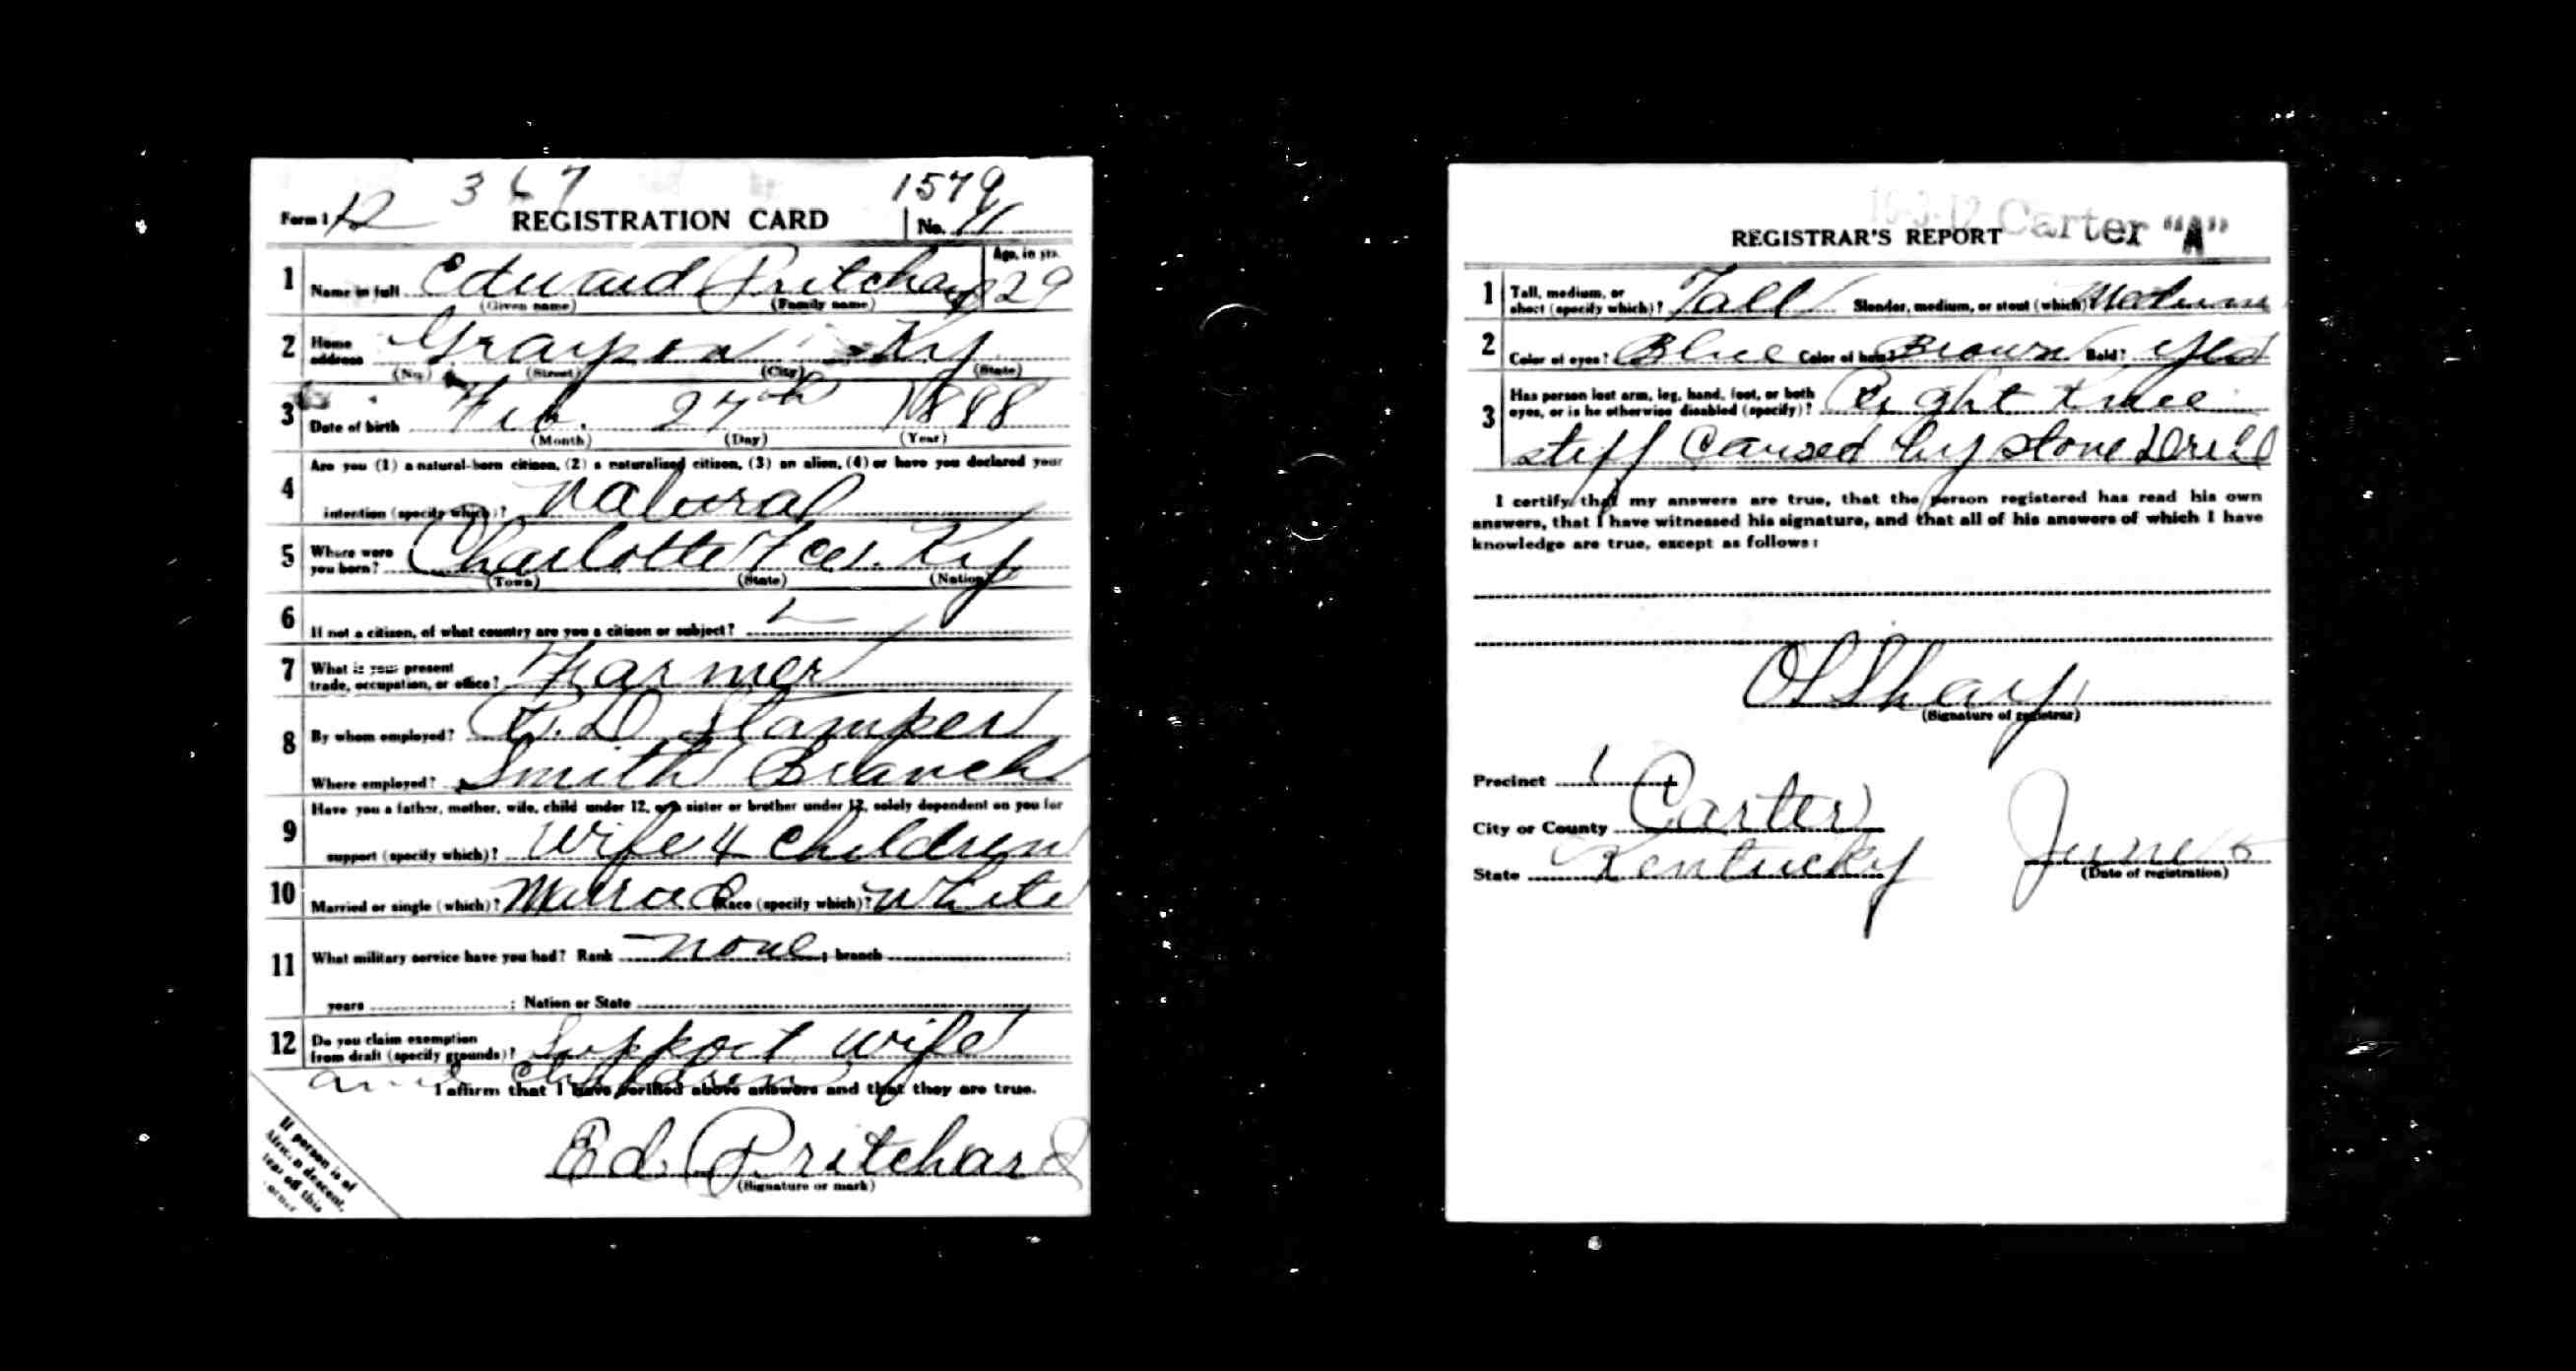 367
1579
Form 1 12 REGISTRATION CARD No. 11
1 Name in full Edward Pritchard Age, in yrs. 29
(Given name) (Family name)
2 Home address Grayson Ky
(No.) (Street) (City) (State)
3 Date of birth Feb. 27th 1888
(Month) (Day) (Year)
4 Are you (1) a natural-born citizen, (2) a naturalized citizen, (3) an alien, (4) or have you declared your
intention (specify which)? Natural
5 Where were you born? Charlotte Ky
(Town) (State) (Nation)
6 If not a citizen, of what country are you a citizen or subject?
7 What is your present trade, occupation, or office? Farmer
8 By whom employed? Stamper
Where employed? Smith Branch
9 Have you a father, mother, wife, child under 12, or a sister or brother under 12, solely dependent on you for
support (specify which)? Wife 4 Children
10 Married or single (which)? Married Race (specify which)? White
11 What military service have you had? Rank None ; branch
years ; Nation or State
12 Do you claim exemption from draft (specify grounds)? Support wife
and children
I affirm that I have verified above answers and that they are true.
Ed. Pritchard
(Signature or mark)
If person is of
African descent,
tear off this
corner
Carter "A"
REGISTRAR'S REPORT
1 Tall, medium, or short (specify which)? Tall Slender, medium, or stout (which)? Medium
2 Color of eyes? Blue Color of hair? Brown Bald? Yes
3 Has person lost arm, leg, hand, foot, or both
eyes, or is he otherwise disabled (specify)? Right Knee
stiff Caused by stone Drill
I certify that my answers are true, that the person registered has read his own
answers, that I have witnessed his signature, and that all of his answers of which I have
knowledge are true, except as follows:
(Signature of registrar)
Precinct 1
City or County Carter
State Kentucky June 5
(Date of registration)